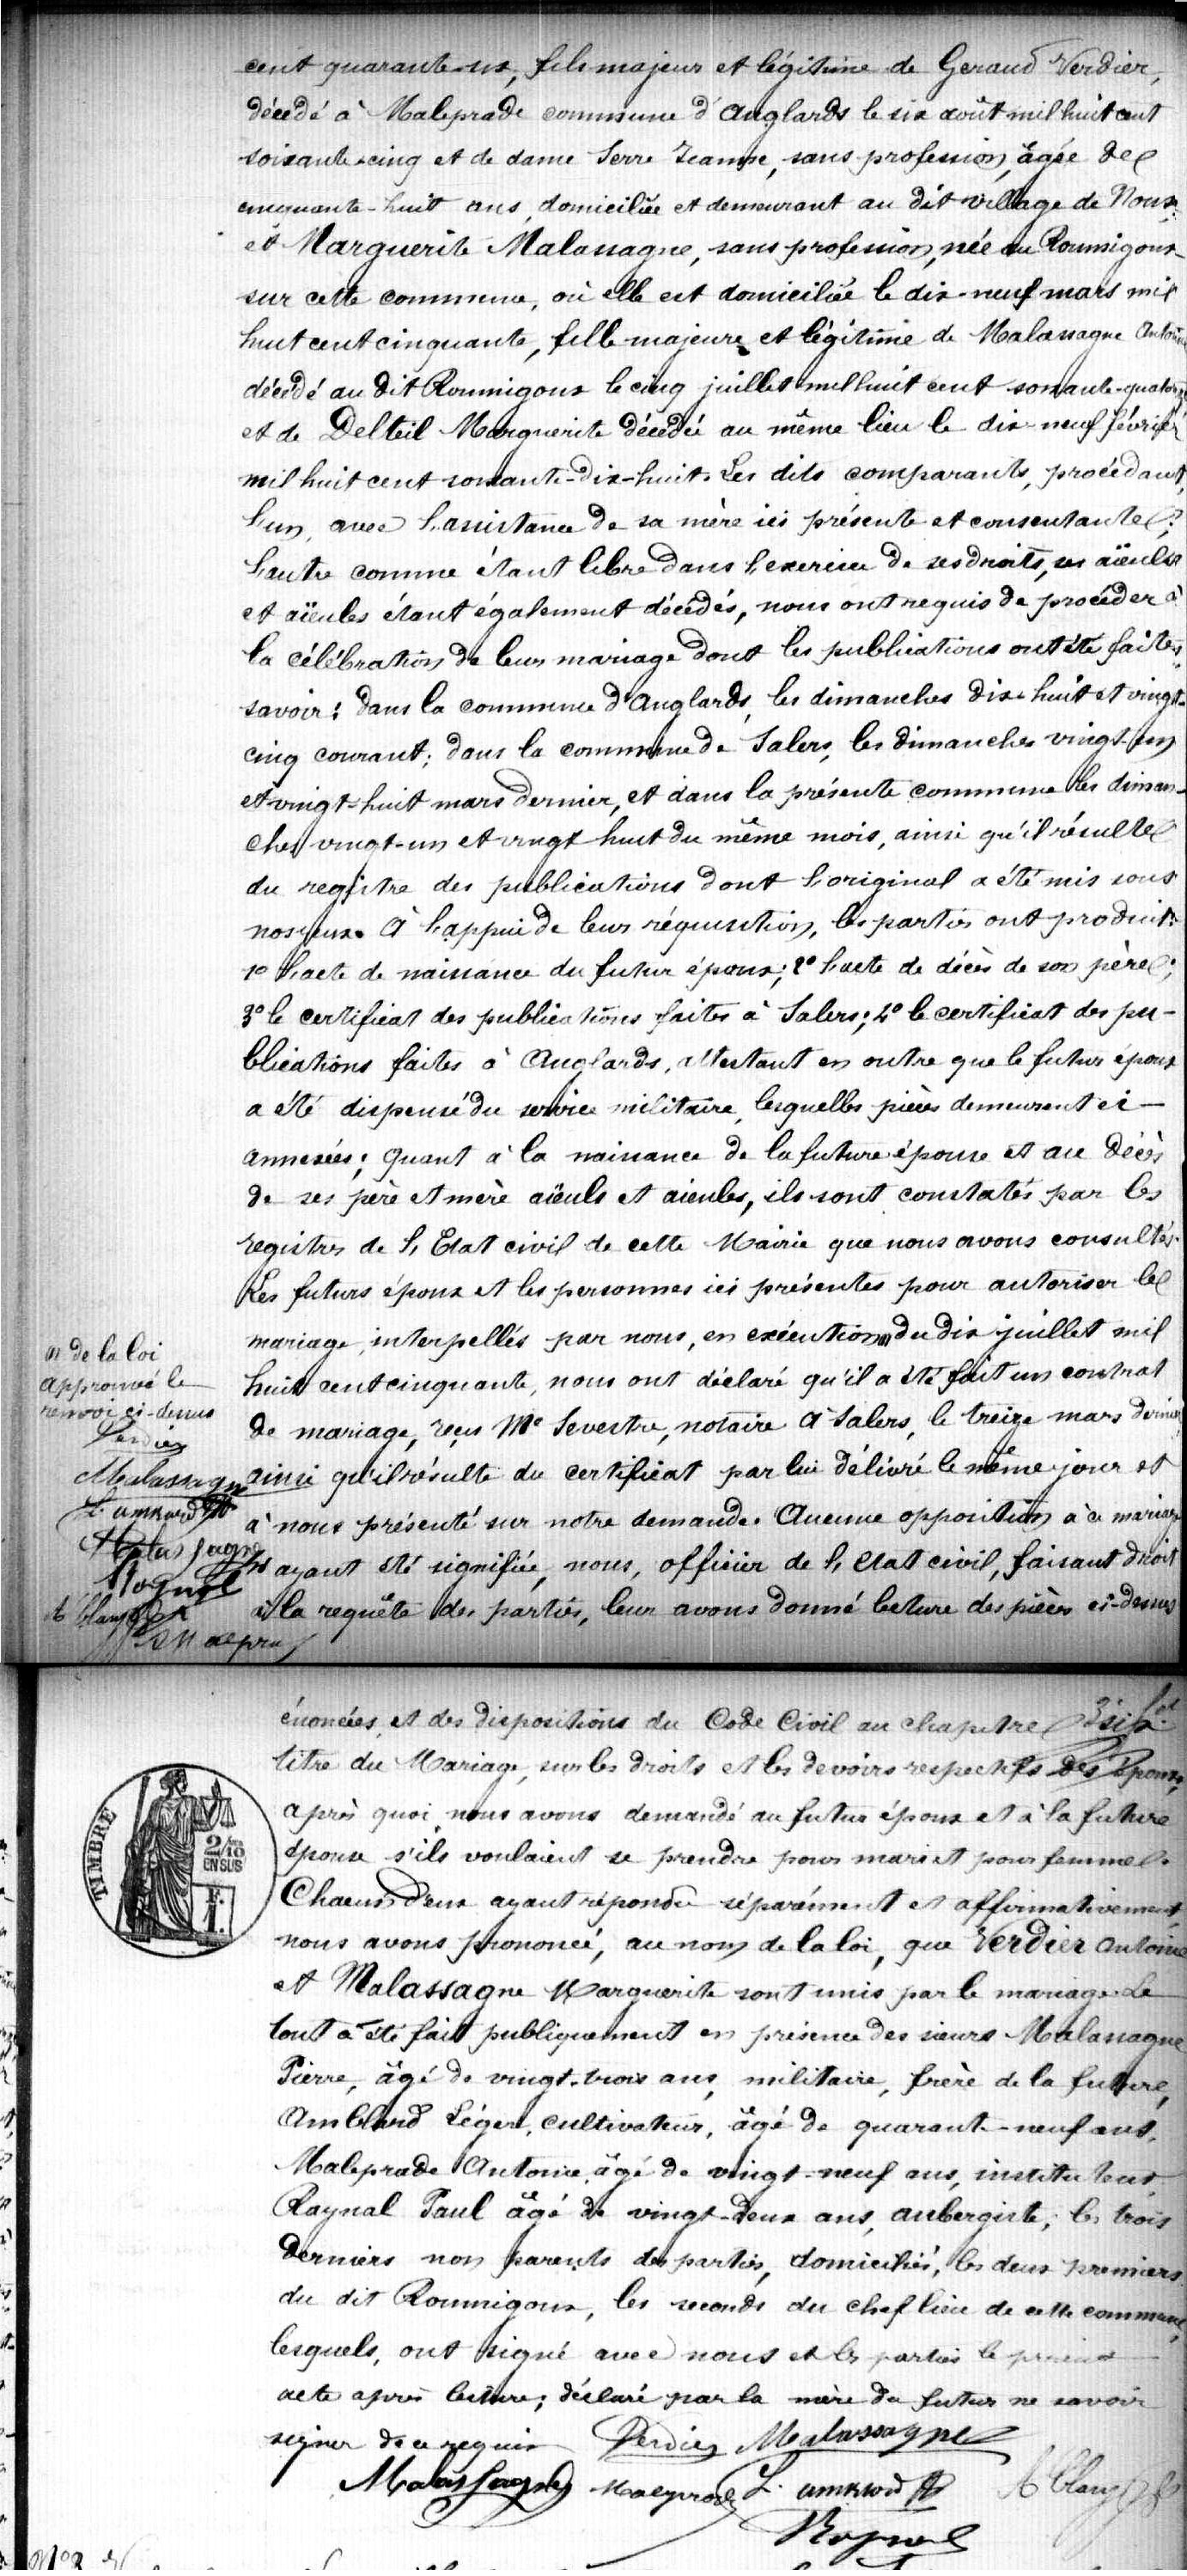 cent quarante-six, fils majeur et légitime de Geraud Verdier,
décédé à Maleprade commune d'Anglards le six août mil huit cent
soixante-cinq et de dame Serre Jeanne, sans profession, âgée de
cinquante-huit ans, domiciliée et demeurant au dit village de Noux;
et Marguerite Malassagne, sans profession, née au Roumigoux
sur cette commune, où elle est domiciliée le dix-neuf mars mil
huit cent cinquante, fille majeure et légitime de Malassagne Antoine
décédé au dit Roumigoux le cinq juillet mil huit cent soixante-quatorze
et de Delteil Marguerite décédée au même lieu le dix-neuf février
mil huit cent soixante-dix-huit. Les dits comparants, procédant,
l'un, avec l'assistance de sa mère ici présente et consentante;
l'autre comme étant libre dans l'exercice de ses droits, ses aïeuls
et aïeules étant également décédés, nous ont requis de procéder à
la célébration de leur mariage dont les publications ont été faites
savoir: dans la commune d'Anglards, les dimanches dix-huit et vingt-
cinq courant; dans la commune de Salers, les dimanches vingt-un
et vingt-huit mars dernier, et dans la présente commune les diman-
ches vingt-un et vingt huit du même mois, ainsi qu'il résulte
du registre des publications dont l'original a été mis sous
nos yeux. À l'appui de leur réquisition, les parties ont produit:
1º l'acte de naissance du futur époux; 2º l'acte de décès de son père;
3º le certificat des publications faites à Salers; 4º le certificat des pu-
blications faites à Anglards, attestant en outre que le futur époux
a été dispensé du service militaire, lesquelles pièces demeurent ci-
annexées; Quant à la naissance de la future épouse et au décès
de ses père et mère aïeuls et aïeules, ils sont constatés par les
registres de l'Etat civil de cette Mairie que nous avons consultés.
Les futurs époux et les personnes ici présentes pour autoriser le
mariage, interpellés par nous, en exécution du dix juillet mil
huit cent cinquante, nous ont déclaré qu'il a été fait un contrat
de mariage, reçu Me Sevestre, notaire à Salers, le treize mars dernier,
ainsi qu'il résulte du certificat par lui délivré le même jour et
à nous présenté sur notre demande. Aucune opposition à ce mariage
n'ayant été signifiée, nous, officier de l'Etat civil, faisant droit
à la requête des parties, leur avons donné lecture des pièces ci-dessus
de la loi
approuvé le
renvoi ci-dessus
Verdier
Malassagne
L. Amblard
Malassagne
Raynal
Maleprade
énoncées, et des dispositions du Code Civil au chapitre six
titre du Mariage, sur les droits et les devoirs respectifs des Epoux,
après quoi nous avons demandé au futur époux et à la future
épouse s'ils voulaient se prendre pour mari et pour femme.
TIMBRE
2/10
EN SUS
F.
1.
Chacun d'eux ayant répondu séparément et affirmativement,
nous avons prononcé, au nom de la loi, que Verdier Antoine
et Malassagne Marguerite sont unis par le mariage. Le
tout a été fait publiquement en présence des sieurs Malassagne
Pierre, âgé de vingt-trois ans, militaire, frère de la future,
Amblard Léger, cultivateur, âgé de quarante-neuf ans,
Maleprade Antoine, âgé de vingt-neuf ans, instituteur,
Raynal Paul âgé de vingt-deux ans, aubergiste; les trois
derniers non parents des parties, domiciliés, les deux premiers
du dit Roumigoux, les seconds du chef lieu de cette commune,
lesquels, ont signé avec nous et les parties le présent
acte après lecture; déclaré par la mère du futur ne savoir
signer de ce requise
Verdier Malassagne
Malassagne Maleprade L. Amblard
Raynal
Nº 3